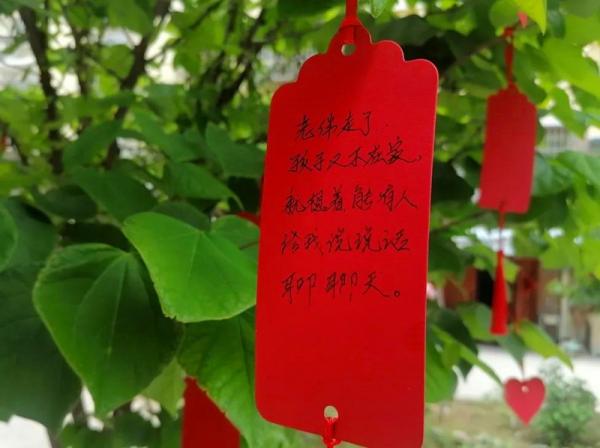 老伴走了
孩子又不在家，
就想着能有人
给我说说话
聊聊天。